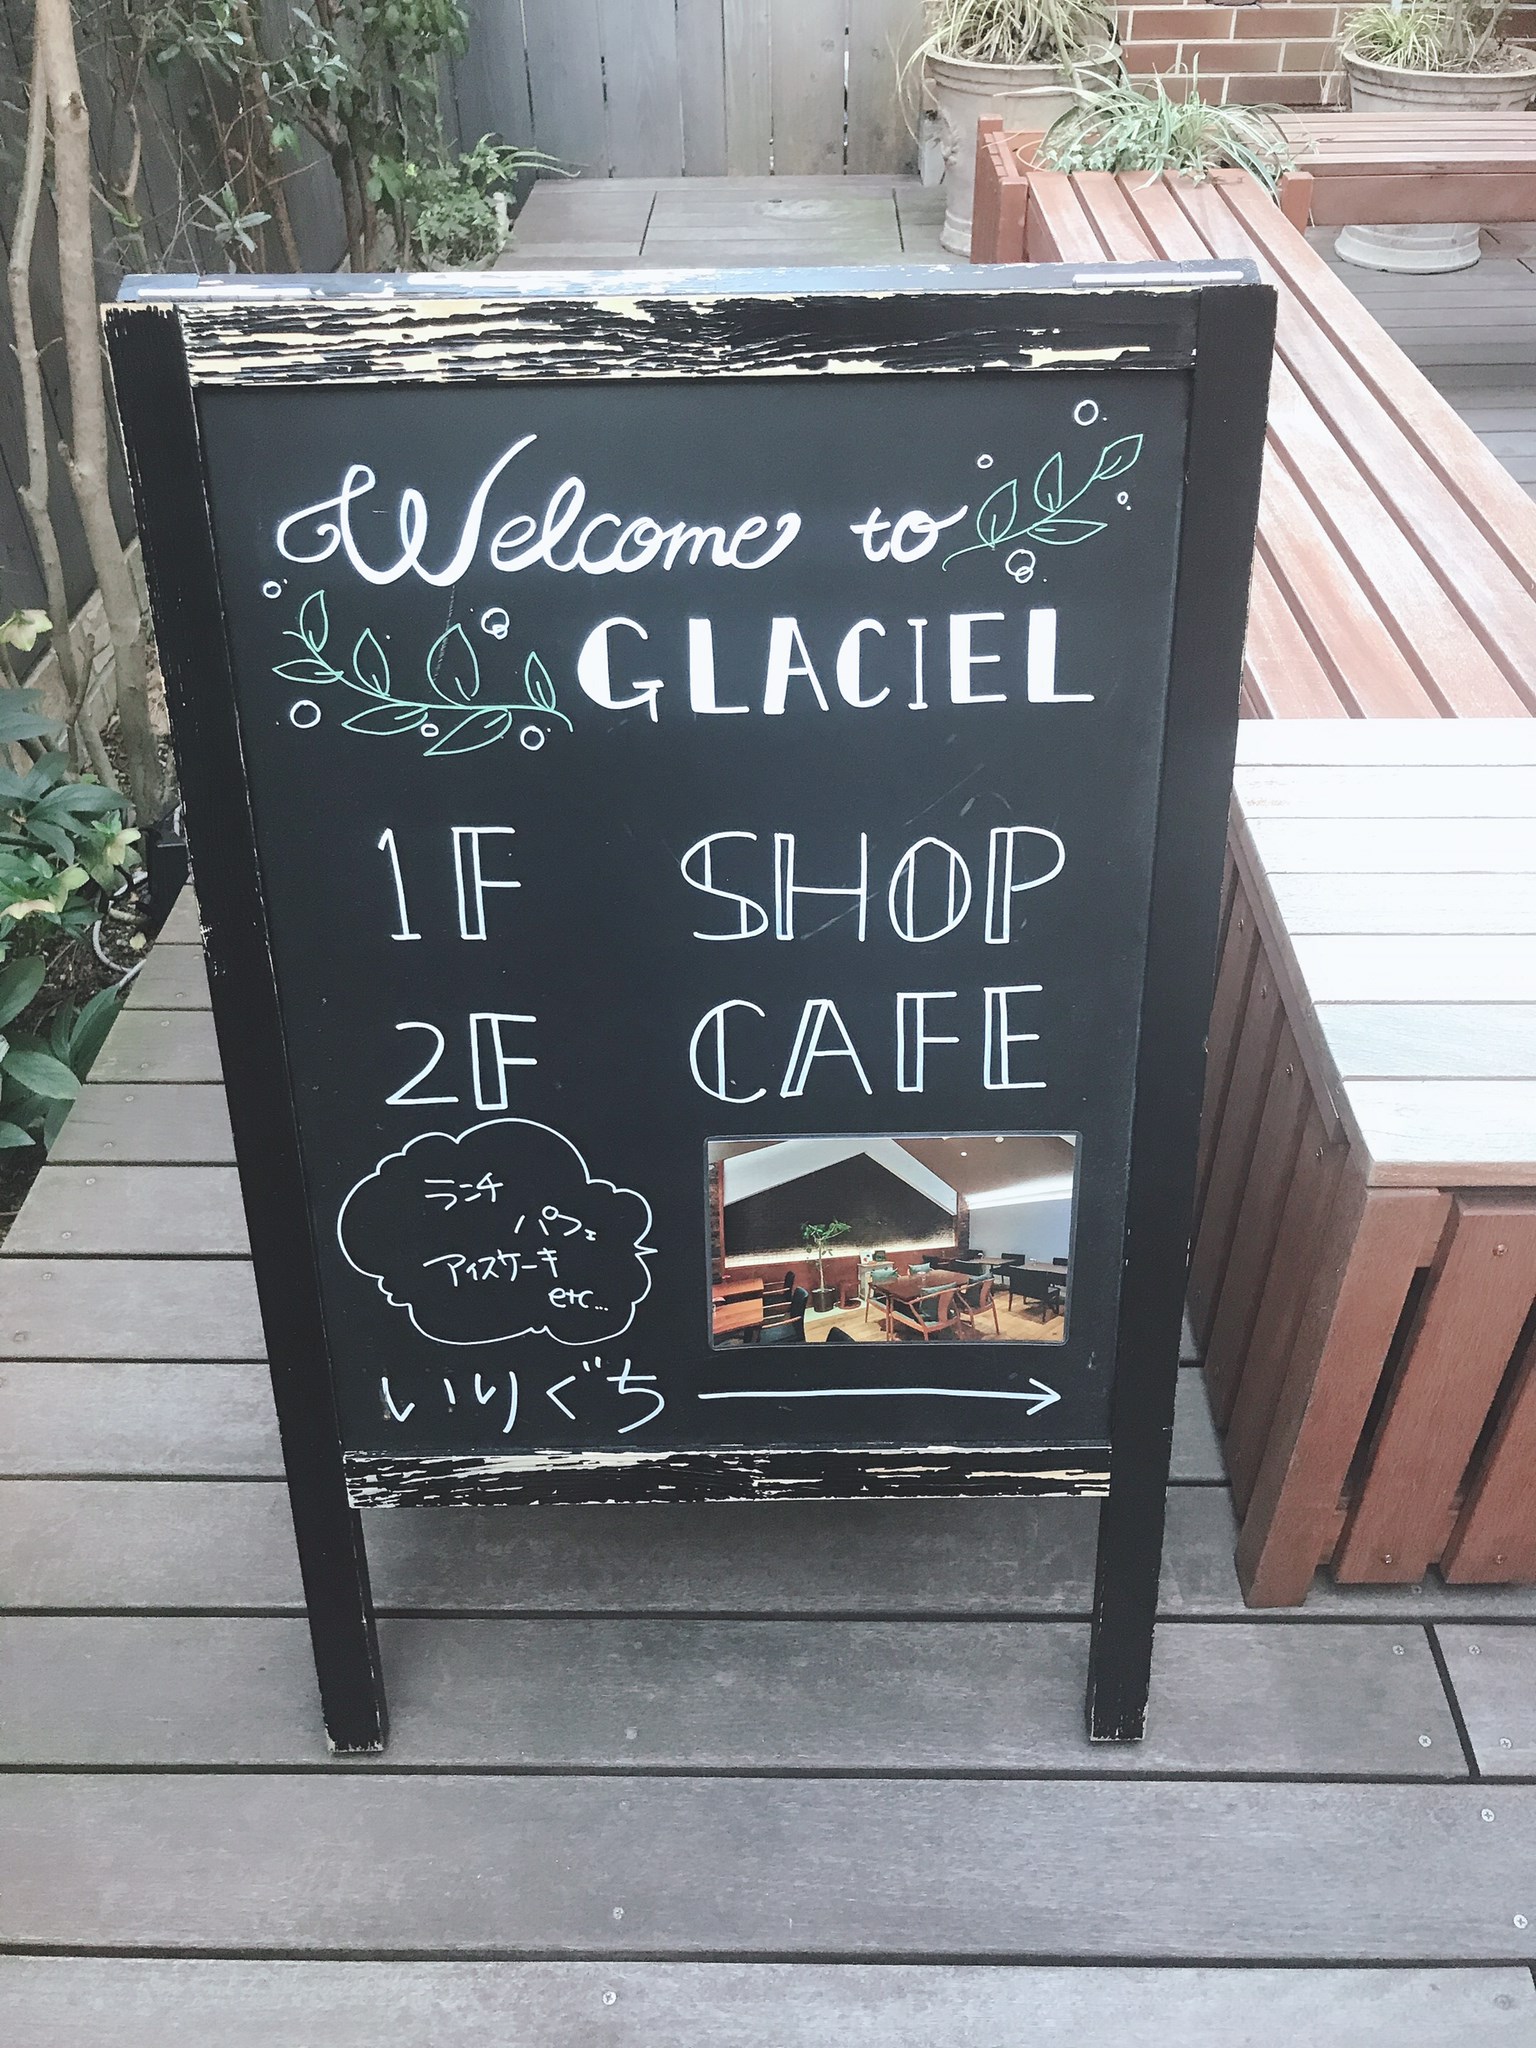 Welcome to
GLACIEL
1F SHOP
2F CAFE
ランチ
パフェ
アイスケーキ
etc...
いりぐち →